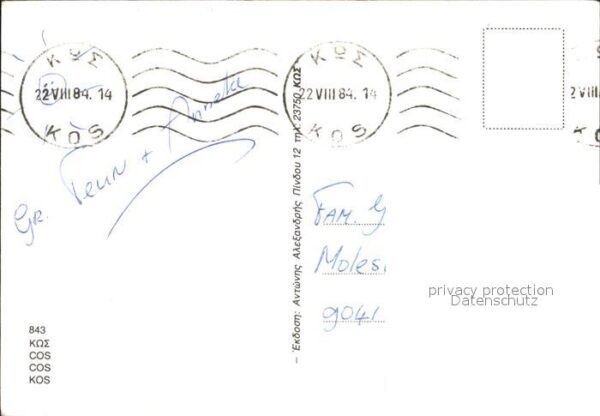 ΚΩΣ
22 VIII 84. 14
KOS
ΚΩΣ
22 VIII 84. 14
KOS
S
2 VIII
S
Gr. Teun + Anneke
— Έκδοση: Αντώνης Αλεξανδρής Πίνδου 12 τηλ. 23750 ΚΩΣ —
FAM. G
Moles.
9041
privacy protection
Datenschutz
843
ΚΩΣ
COS
COS
KOS